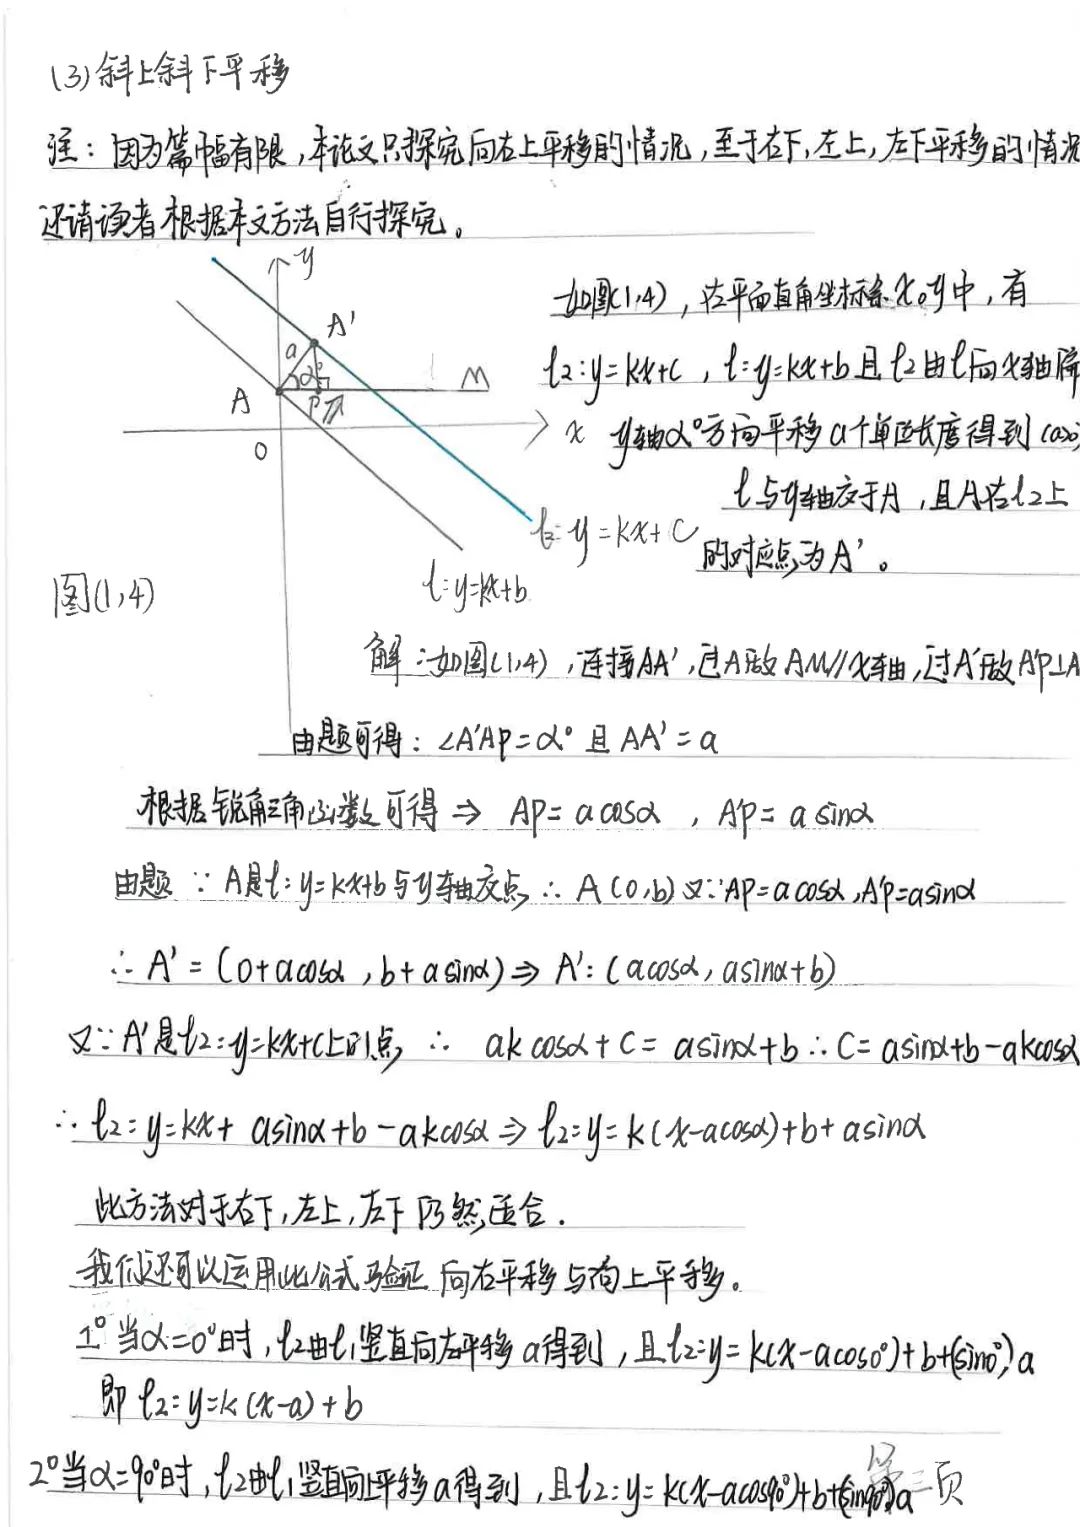 (3)斜上斜下平移
注：因为篇幅有限，本论文只探究向右上平移的情况，至于右下，左上，左下平移的情况
还请读者根据本文方法自行探究。
y
A'
a
α°
M
A
P
O
x
l2:y=kx+C
l:y=kx+b
图(1,4)
如图(1,4)，在平面直角坐标系xoy中，有
l2:y=kx+c，l:y=kx+b且l2由l向x轴偏
y轴α°方向平移a个单位长度得到(a>0)
l与y轴交于A，且A在l2上
的对应点为A'。
解：如图(1,4)，连接AA'，过A做AM//x轴，过A'做A'P⊥A
由题可得：∠A'AP=α° 且 AA'=a
根据锐角三角函数可得 ⇒ AP=acosα，A'P=asinα
由题 ∵A是l:y=kx+b与y轴交点 ∴A(0,b) 又∵AP=acosα,A'P=asinα
∴A'=(0+acosα,b+asinα)⇒A':(acosα,asinα+b)
又∵A'是l2:y=kx+c上的点 ∴ akcosα+C=asinα+b ∴C=asinα+b-akcosα
∴l2:y=kx+asinα+b-akcosα⇒l2:y=k(x-acosα)+b+asinα
此方法对于右下,左上,左下仍然适合.
我们还可以运用此公式验证向右平移与向上平移。
1°当α=0°时，l2由l1竖直向右平移a得到，且l2:y=k(x-acos0°)+b+(sin0°)a
即l2:y=k(x-a)+b
2°当α=90°时，l2由l1竖直向上平移a得到，且l2:y=k(x-acos90°)+b+(sin90°)a
第三页